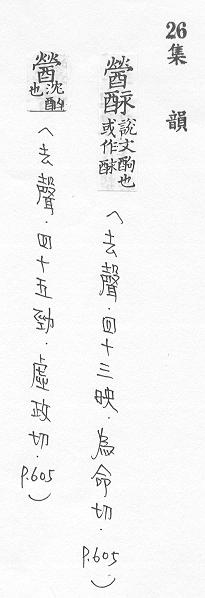 26集韻
醟 說文也或作
(去聲．四十三映．為命切．P.605)
醟 沈也
(去聲．四十五勁．虛政切．P.605)